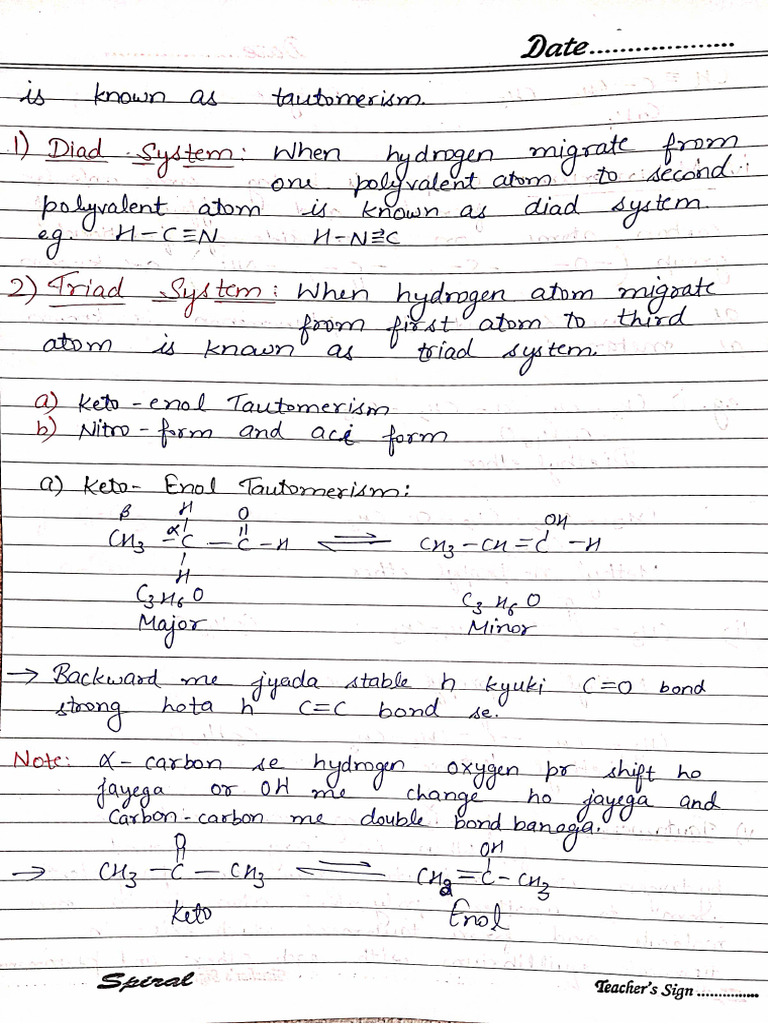 Date....................
is known as tautomerism.
1) Diad System: When hydrogen migrate from
one polyvalent atom to second
polyvalent atom is known as diad system.
eg. H-C≡N H-N≡C
2) Triad System: When hydrogen atom migrate
from first atom to third
atom is known as triad system.
a) Keto-enol Tautomerism
b) Nitro-form and aci form
a) Keto-Enol Tautomerism:
β H O OH
CH3 -αC - C - H ⇌ CH3-CH=C-H
H
C3H6O C3H6O
Major Minor
→ Backward me jyada stable h kyuki C=O bond
strong hota h C=C bond se.
Note: α-carbon se hydrogen oxygen pr shift ho
jayega or OH me change ho jayega and
Carbon-carbon me double bond banega.
O OH
→ CH3-C-CH3 ⇌ CH2=C-CH3
Keto Enol
Spiral Teacher's Sign ...............